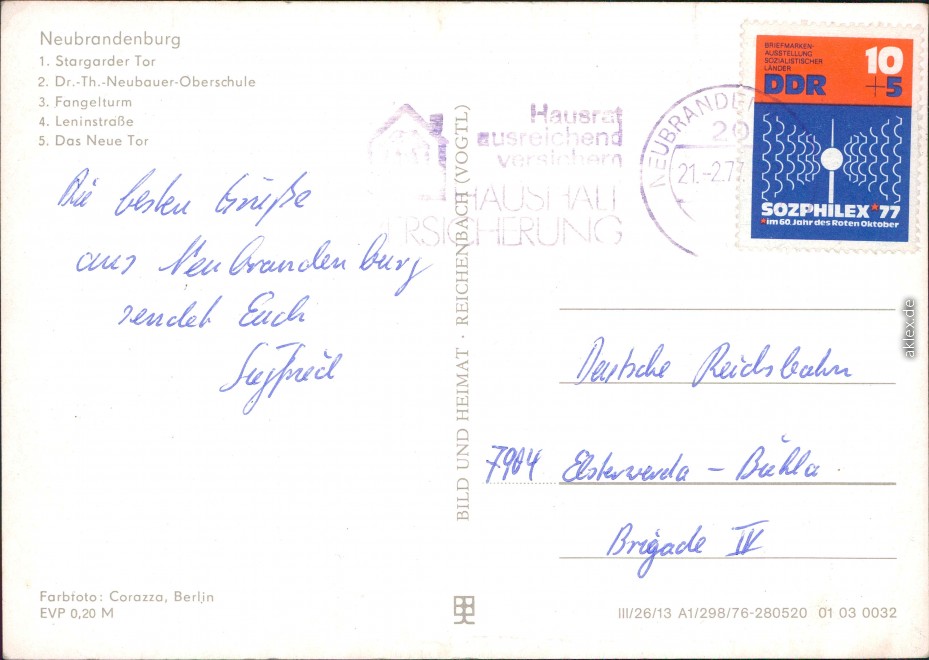 Neubrandenburg
1. Stargarder Tor
2. Dr.-Th.-Neubauer-Oberschule
3. Fangelturm
4. Leninstraße
5. Das Neue Tor
Die besten Grüße
aus Neubrandenburg
sendet Euch
Siegfried
Farbfoto: Corazza, Berlin
EVP 0,20 M
BILD UND HEIMAT · REICHENBACH (VOGTL)
Hausrat
ausreichend
versichern
HAUSHALT
ERSICHERUNG
NEUBRANDE
20
21.-2.77
BRIEFMARKEN-
AUSSTELLUNG
SOZIALISTISCHER
LÄNDER
DDR
10
+5
SOZPHILEX *77
*im 60. Jahr des Roten Oktober
aklex.de
Deutsche Reichsbahn
7904 Elsterwerda – Biehla
Brigade IV
III/26/13 A1/298/76-280520 01 03 0032